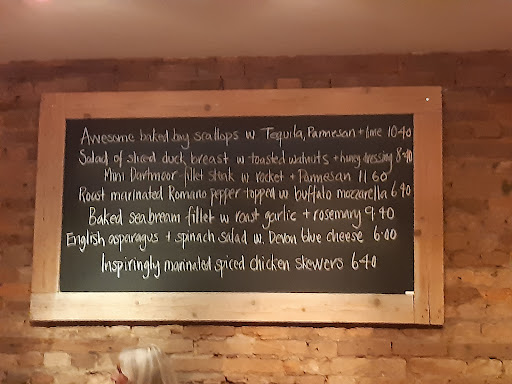 Awesome baked bay scallops w Tequila, Parmesan + lime 10.40
Salad of sliced duck breast w toasted walnuts + honey dressing 8.40
Mini Dartmoor fillet steak w rocket + Parmesan 11 60
Roast marinated Romano pepper topped w buffalo mozzarella 6 40
Baked seabream fillet w roast garlic + rosemary 9.40
English asparagus + spinach salad w. Devon blue cheese 6.00
Inspiringly marinated spiced chicken skewers 6.40